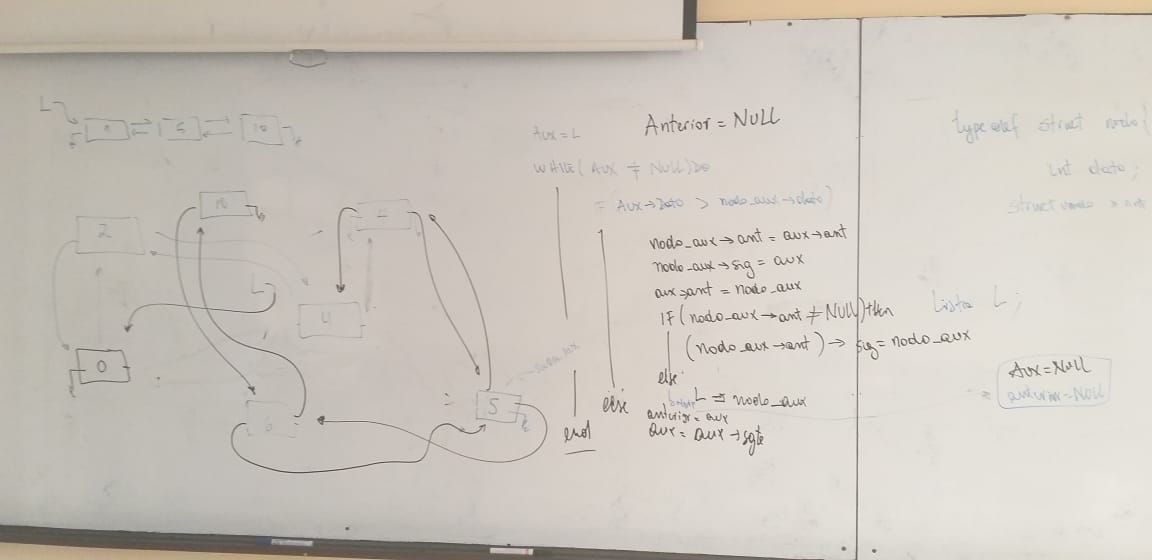 L
1 5 10
Aux = L
Anterior = NULL
WHILE (Aux ≠ NULL) DO
Aux → Dato > nodo_aux → dato)
nodo_aux → ant = aux → ant
nodo_aux → sig = aux
aux → ant = nodo_aux
IF (nodo_aux → ant ≠ NULL) then
(nodo_aux → ant) → sig = nodo_aux
else
L = nodo_aux
else
anterior = aux
aux = aux → sgte
end
typedef struct nodo {
int dato;
struct nodo * ant
Lista L;
Aux = NULL
anterior = NULL
2
10
L
4
0
6
5